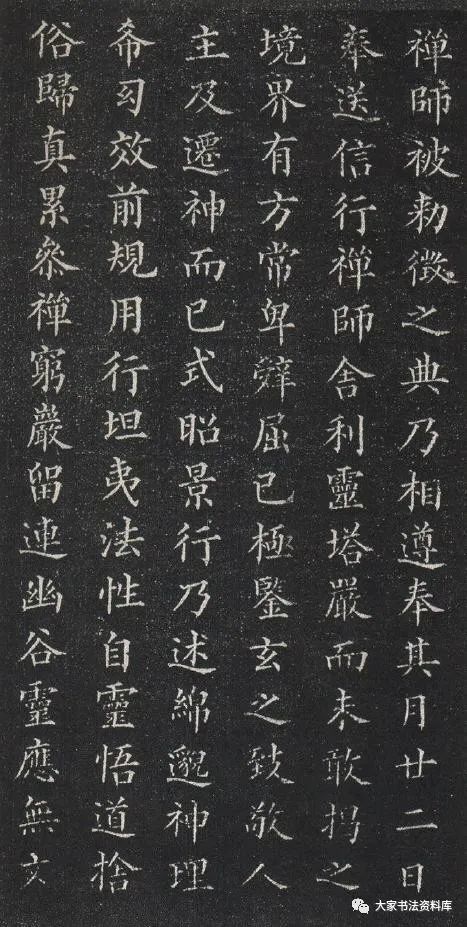 禪師被勑徵之典乃相遵奉其月廿二日
奉送信行禪師舍利靈塔嚴而未敢之
境界有方常卑辤屈已極鑒玄之致敬人
主及遷神而已式昭景行乃述綿邈神理
效前規用行坦夷法性自靈悟道捨
俗歸真累叅禪窮嚴留連幽谷靈應無文
大家书法资料库